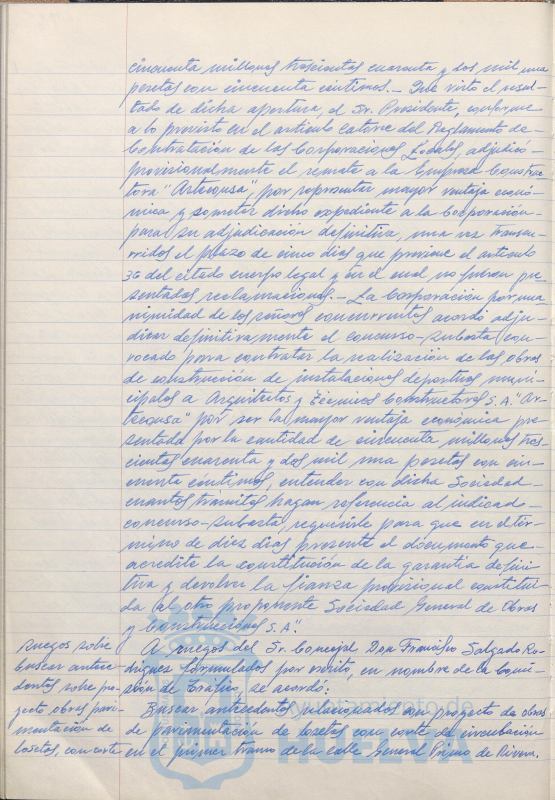 cincuenta millones trescientas cuarenta y dos mil una
pesetas con cincuenta céntimos.- Que visto el resul-
tado de dicha apertura, el Sr. Presidente, conforme
a lo previsto en el artículo catorce del Reglamento de
Contratación de las Corporaciones Locales, adjudicó
provisionalmente el remate a la Empresa Construc-
tora "Artecqusa" por representar mayor ventaja econó-
mica y someter dicho expediente a la Corporación
para su adjudicación definitiva, una vez transcu-
rridos el plazo de cinco días que previene el artículo
36 del citado cuerpo legal y en el cual no fueron pre-
sentadas reclamaciones.- La Corporación por una-
nimidad de los señores concurrentes acordó adju-
dicar definitivamente el concurso-subasta con-
vocado para contratar la realización de las obras
de construcción de instalaciones deportivas muni-
cipales a Arquitectos y Técnicos Constructores S.A. "Ar-
tecqusa" por ser la mayor ventaja económica pre-
sentada por la cantidad de cincuenta millones tres
cientas cuarenta y dos mil una pesetas con cin-
cuenta céntimos, entender con dicha Sociedad
cuantos trámites hagan referencia al indicado
concurso-subasta, requerirle para que en el tér-
mino de diez días presente el documento que
acredite la constitución de la garantía defini-
tiva y devolver la fianza provisional constitui-
da al otro proponente Sociedad General de Obras
y Construcciones S.A."
Ruegos sobre
buscar antece-
dentes sobre pro-
yecto obras pavi-
mentación de
losetas, con corte
A ruegos del Sr. Concejal Don Francisco Salgado Ro-
dríguez formulados por escrito, en nombre de la Comi-
sión de Tráfico, se acordó:
Buscar antecedentes relacionados con proyecto de obras
de pavimentación de losetas con corte de circulación
en el primer tramo de la calle General Primo de Rivera,
Ayuntamiento de
HUELVA